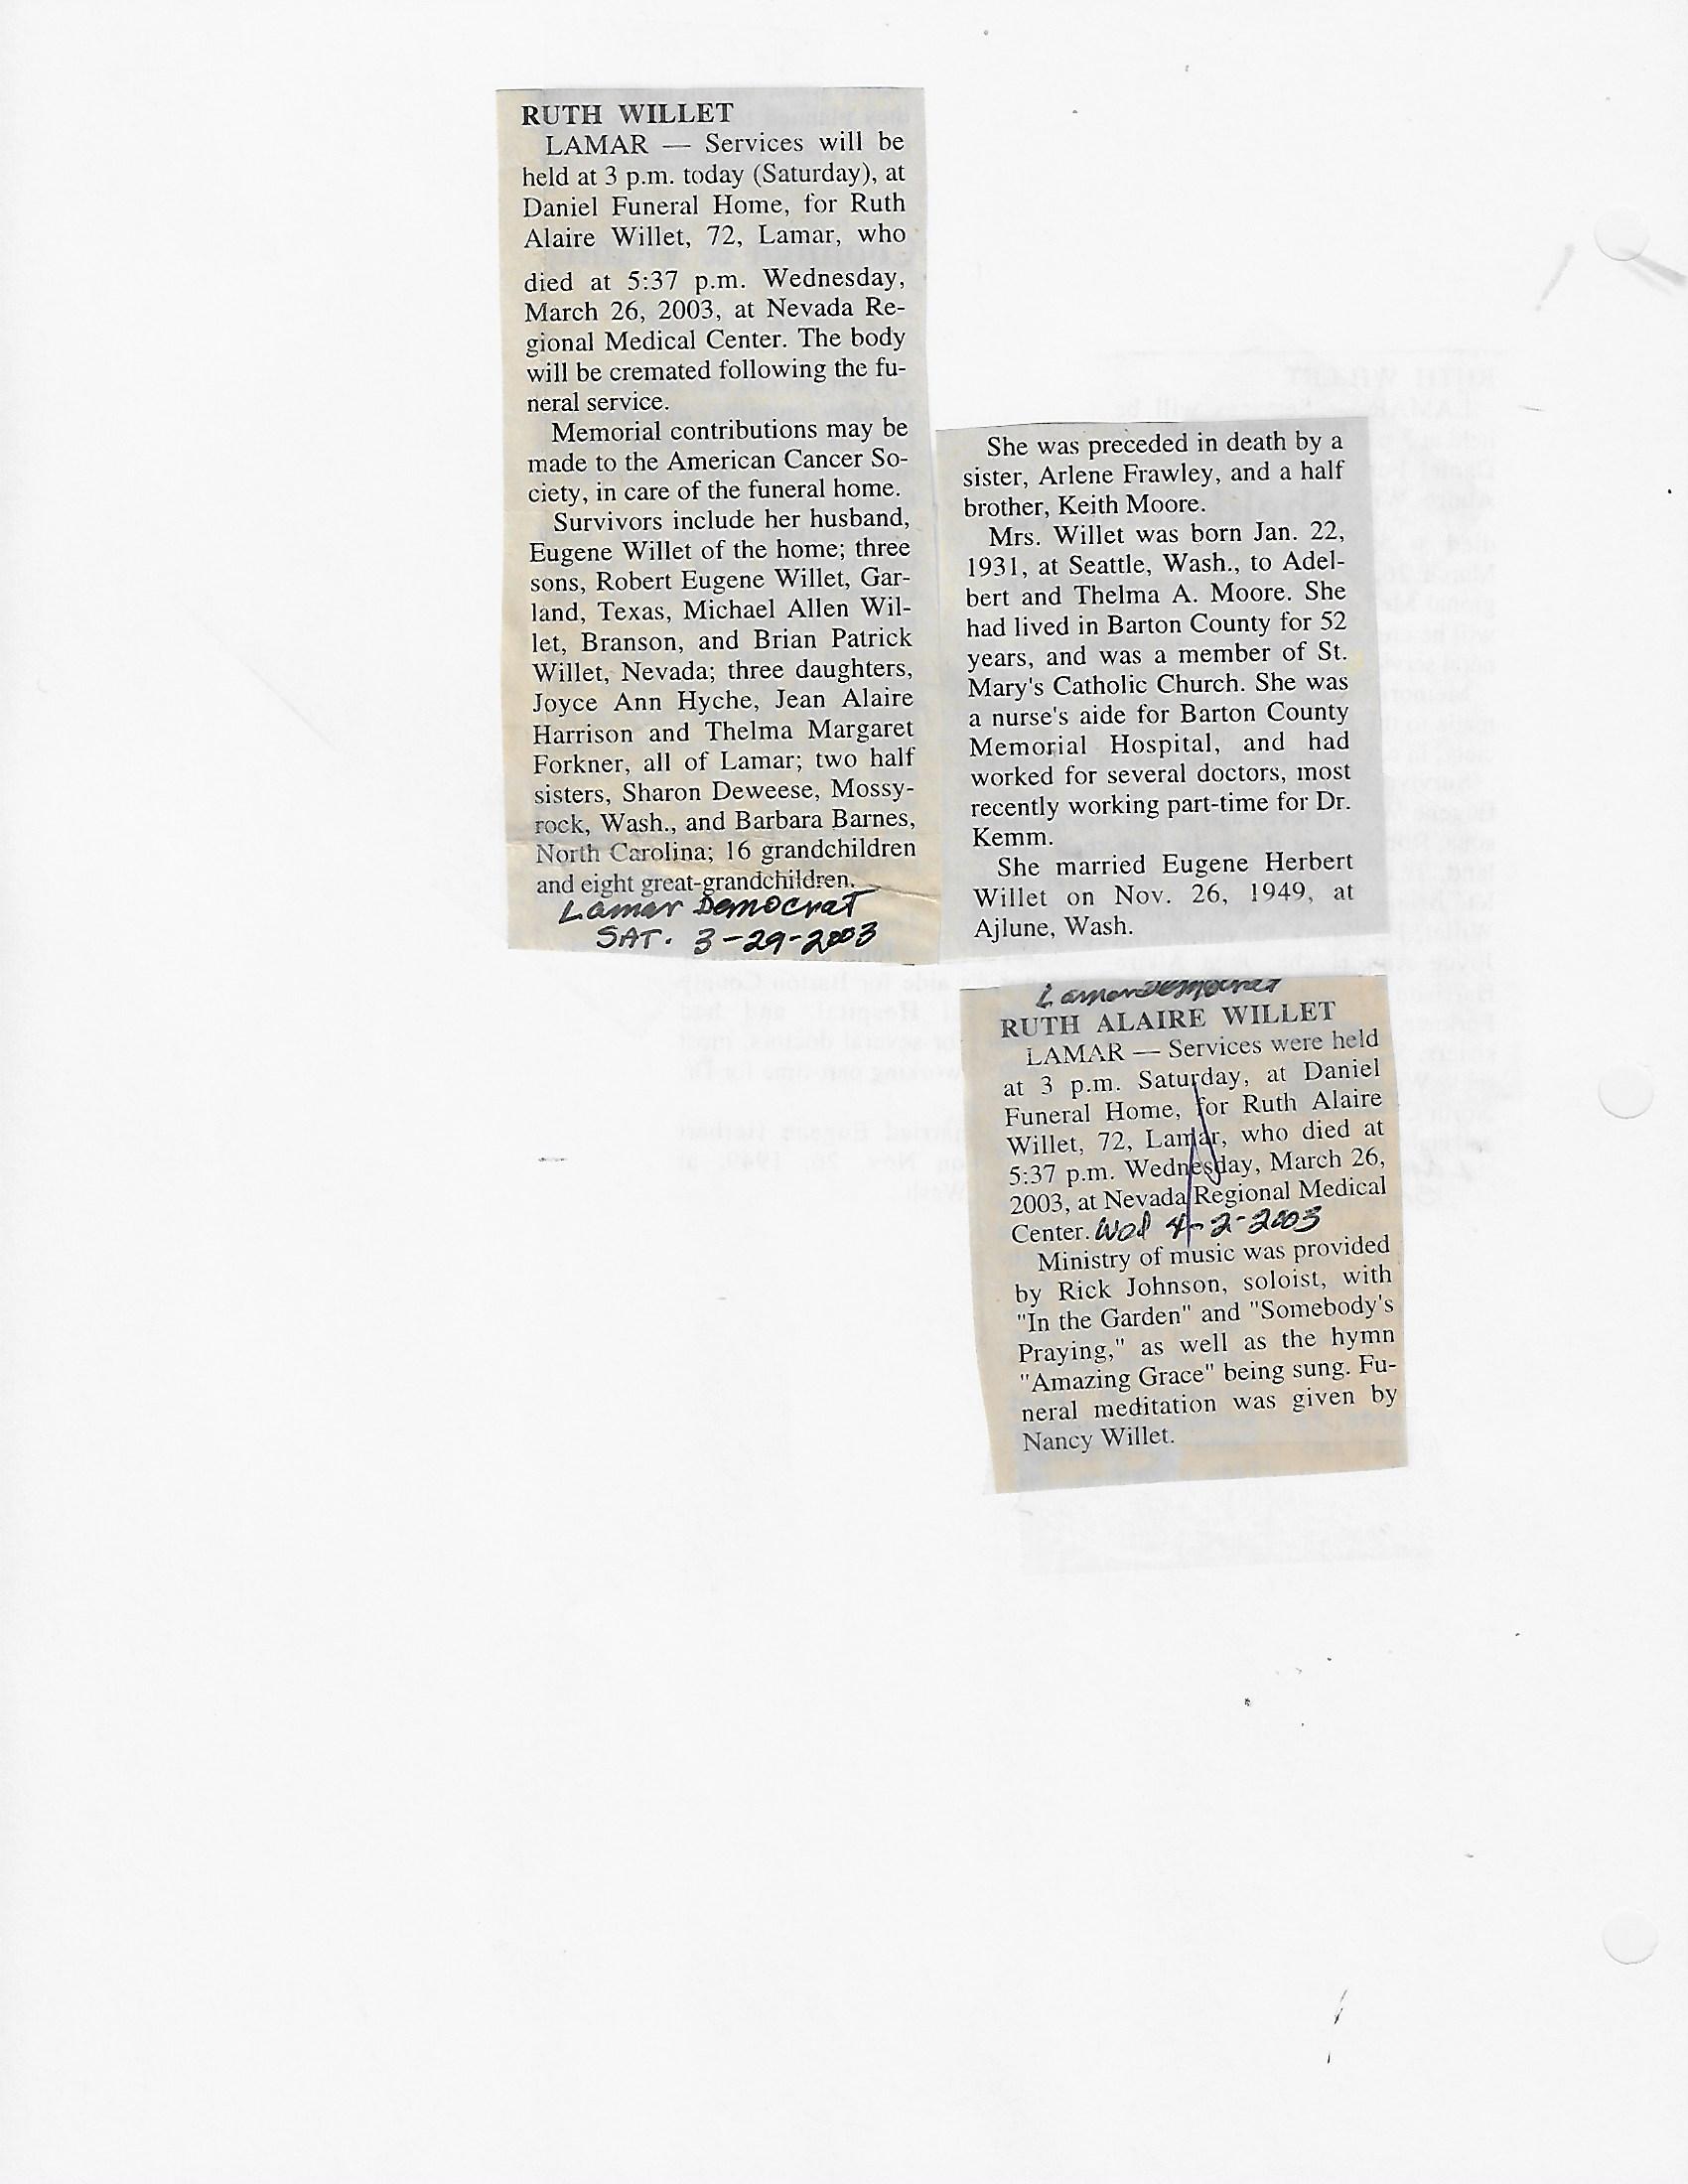 RUTH WILLET
LAMAR — Services will be
held at 3 p.m. today (Saturday), at
Daniel Funeral Home, for Ruth
Alaire Willet, 72, Lamar, who
died at 5:37 p.m. Wednesday,
March 26, 2003, at Nevada Re-
gional Medical Center. The body
will be cremated following the fu-
neral service.
Memorial contributions may be
made to the American Cancer So-
ciety, in care of the funeral home.
Survivors include her husband,
Eugene Willet of the home; three
sons, Robert Eugene Willet, Gar-
land, Texas, Michael Allen Wil-
let, Branson, and Brian Patrick
Willet, Nevada; three daughters,
Joyce Ann Hyche, Jean Alaire
Harrison and Thelma Margaret
Forkner, all of Lamar; two half
sisters, Sharon Deweese, Mossy-
rock, Wash., and Barbara Barnes,
North Carolina; 16 grandchildren
and eight great-grandchildren.
Lamar Democrat
SAT. 3-29-2003
She was preceded in death by a
sister, Arlene Frawley, and a half
brother, Keith Moore.
Mrs. Willet was born Jan. 22,
1931, at Seattle, Wash., to Adel-
bert and Thelma A. Moore. She
had lived in Barton County for 52
years, and was a member of St.
Mary's Catholic Church. She was
a nurse's aide for Barton County
Memorial Hospital, and had
worked for several doctors, most
recently working part-time for Dr.
Kemm.
She married Eugene Herbert
Willet on Nov. 26, 1949, at
Ajlune, Wash.
Lamar Democrat
RUTH ALAIRE WILLET
LAMAR — Services were held
at 3 p.m. Saturday, at Daniel
Funeral Home, for Ruth Alaire
Willet, 72, Lamar, who died at
5:37 p.m. Wednesday, March 26,
2003, at Nevada Regional Medical
Center. Wed 4-2-2003
Ministry of music was provided
by Rick Johnson, soloist, with
"In the Garden" and "Somebody's
Praying," as well as the hymn
"Amazing Grace" being sung. Fu-
neral meditation was given by
Nancy Willet.